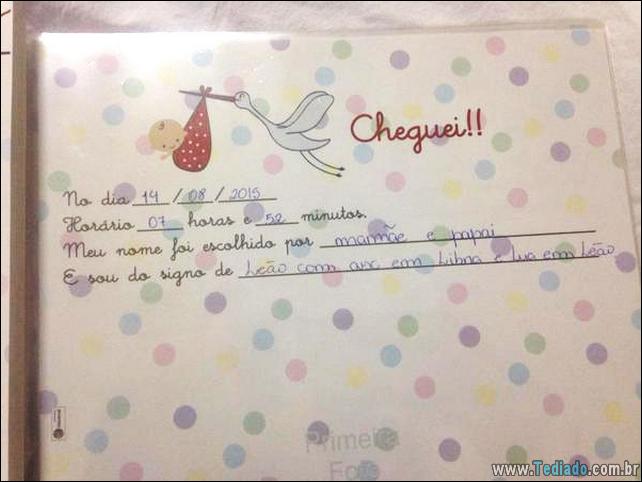 Cheguei!!
No dia 14 / 08 / 2015
Horário 07 horas e 52 minutos.
Meu nome foi escolhido por mamãe e papai
E sou do signo de Leão com asc em Libra e Lua em Leão
Primeira
Foto
www.Tediado.com.br